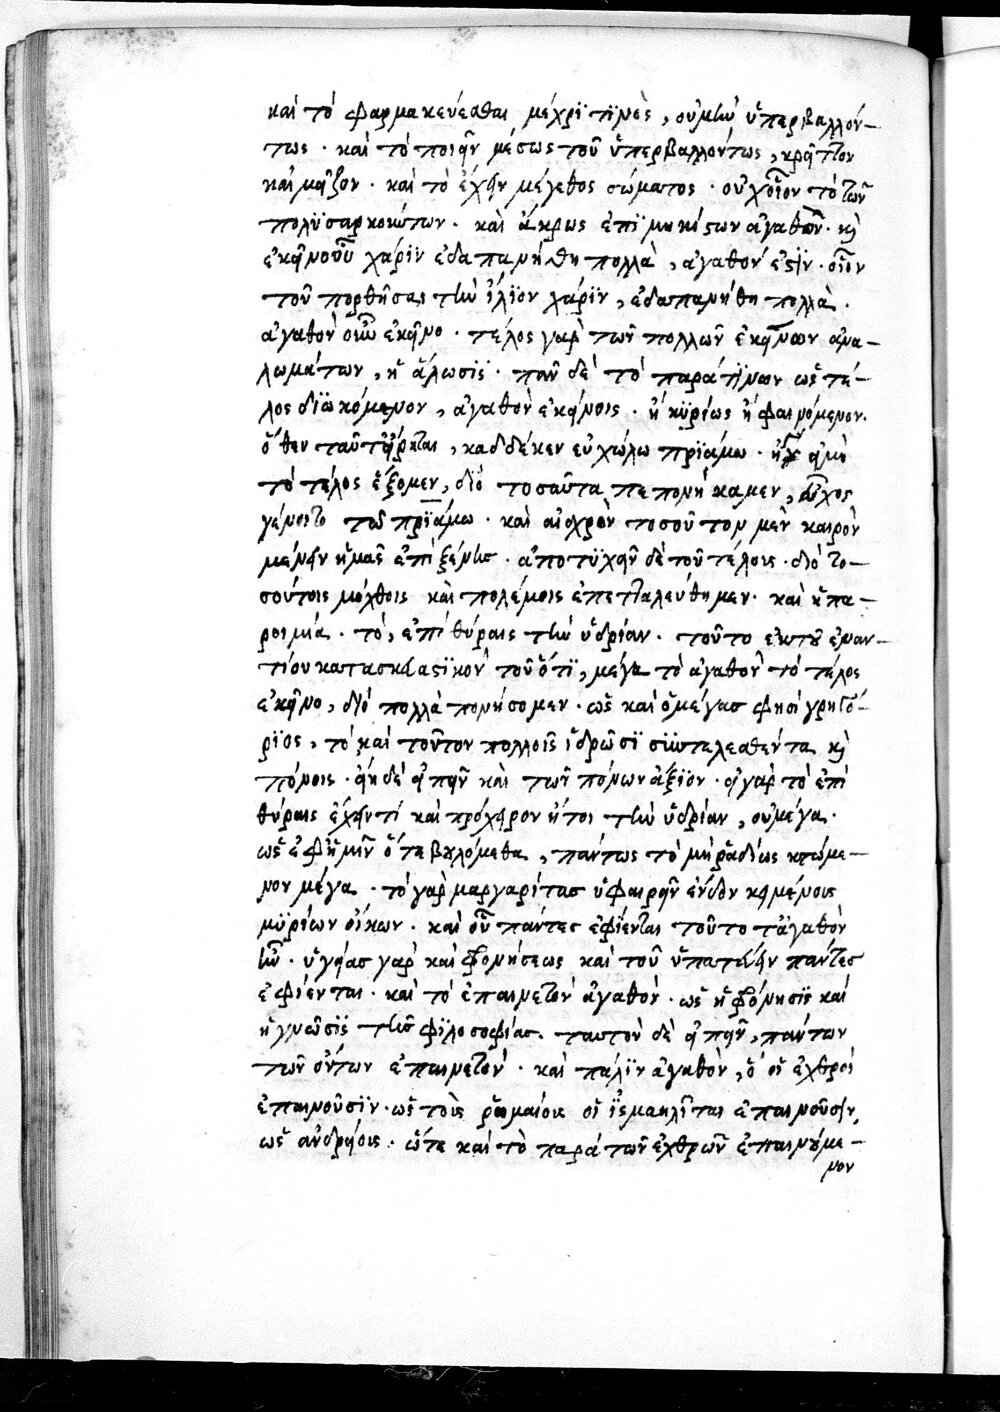 καὶ τὸ φαρμακεύεσθαι μέχρϊ τϊνὸς, οὐμὴν ὑπερβαλλόν-
τως · καὶ τὸ ποιεῖν μέσως τοῦ ὑπερβαλλόντως, κρεῖττον
καὶ μεῖζον · καὶ τὸ ἔχειν μέγεθος σώματος · οὐχ οἷον τὸ τῶν
πολϋσαρκούντων · καὶ ἄκρως ἐπϊμηκίστων ἀγαθὸν · καὶ
ἐκεῖνο οὗ χάρϊν ἐδαπανήθη πολλὰ, ἀγαθόν ἐστϊν · οἷον
τοῦ πορθῆσαι τὴν ἴλϊον χάρϊν, ἐδαπανήθη πολλὰ ·
ἀγαθὸν οὖν ἐκεῖνο · τέλος γὰρ τῶν πολλῶν ἐκείνων ἀνα-
λωμάτων, ἡ ἅλωσϊς · πᾶν δὲ τὸ παρά τϊνων ὡς τέ-
λος διωκόμενον, ἀγαθὸν ἐκείνοις · ἢ κϋρίως ἢ φαινόμενον ·
ὅθεν ταῦτα εἴρηται, καδδέκεν εὐχωλὴν πρϊάμω · εἰ μὴ
τὸ τέλος ἕξομεν, διὸ τοσαῦτα πεπονήκαμεν, εὖχος
γένοιτο τῶ πρϊάμω · καὶ αἰσχρὸν τοσοῦτον μὲν καιρὸν
μένειν ἡμᾶς ἐπὶ ξένης · ἀποτϋχεῖν δὲ τοῦ τέλους · διὸ το-
σούτοις μόχθοις καὶ πολέμοις ἐπετταλεύθημεν · καὶ ἡ πα-
ροιμία · τὸ, ἐπὶ θύραις τὴν ὑδρίαν · τοῦτο ἐκ τοῦ ἐναν-
τίου κατασκευαστϊκὸν τοῦ ὅτϊ, μέγα τὸ ἀγαθὸν τὸ τέλος
ἐκεῖνο, διὸ πολλὰ πονήσομεν · ὡς καὶ ὁ μέγας φησὶ γρηγό-
ρϊος, τὸ καὶ τοῦτον πολλοῖς ἱδρῶσϊ σϋντελεσθέντα καὶ
πόνοις · εἴη δὲ εἰπεῖν καὶ τῶν πόνων ἄξϊον · εἰ γὰρ τὸ ἐπὶ
θύραις ἔχειν τί καὶ πρόχειρον ἤτοι τὴν ὑδρίαν, οὐ μέγα ·
ὡς ἐφ' ἡμῖν ὅτε βουλόμεθα, πάντως τὸ μὴ ῥαδίως κτώμε-
νον μέγα · τὸ γὰρ μαργαρίτας ὑφαιρεῖν ἔνδον κειμένους
μϋρίων οἴκων · καὶ οὗ πάντες ἐφίενται τοῦτο τἀγαθὸν
ἦν · ὑγείας γὰρ καὶ φρονήσεως καὶ τοῦ ὑπατεύειν πάντες
ἐφίενται · καὶ τὸ ἐπαινετὸν ἀγαθὸν · ὡς ἡ φρόνησϊς καὶ
ἡ γνῶσϊς τῆς φϊλοσοφίας · ταυτὸν δὲ εἰπεῖν, πάντων
τῶν ὄντων ἐπαινετὸν · καὶ πάλϊν ἀγαθὸν, ὃ οἱ ἐχθροὶ
ἐπαινοῦσϊν · ὡς τοὺς ῥωμαίους οἱ ἰσμαηλῖται ἐπαινοῦσϊν,
ὡς ἀνδρείους · ὥστε καὶ τὸ παρὰ τῶν ἐχθρῶν ἐπαινούμε-
νον